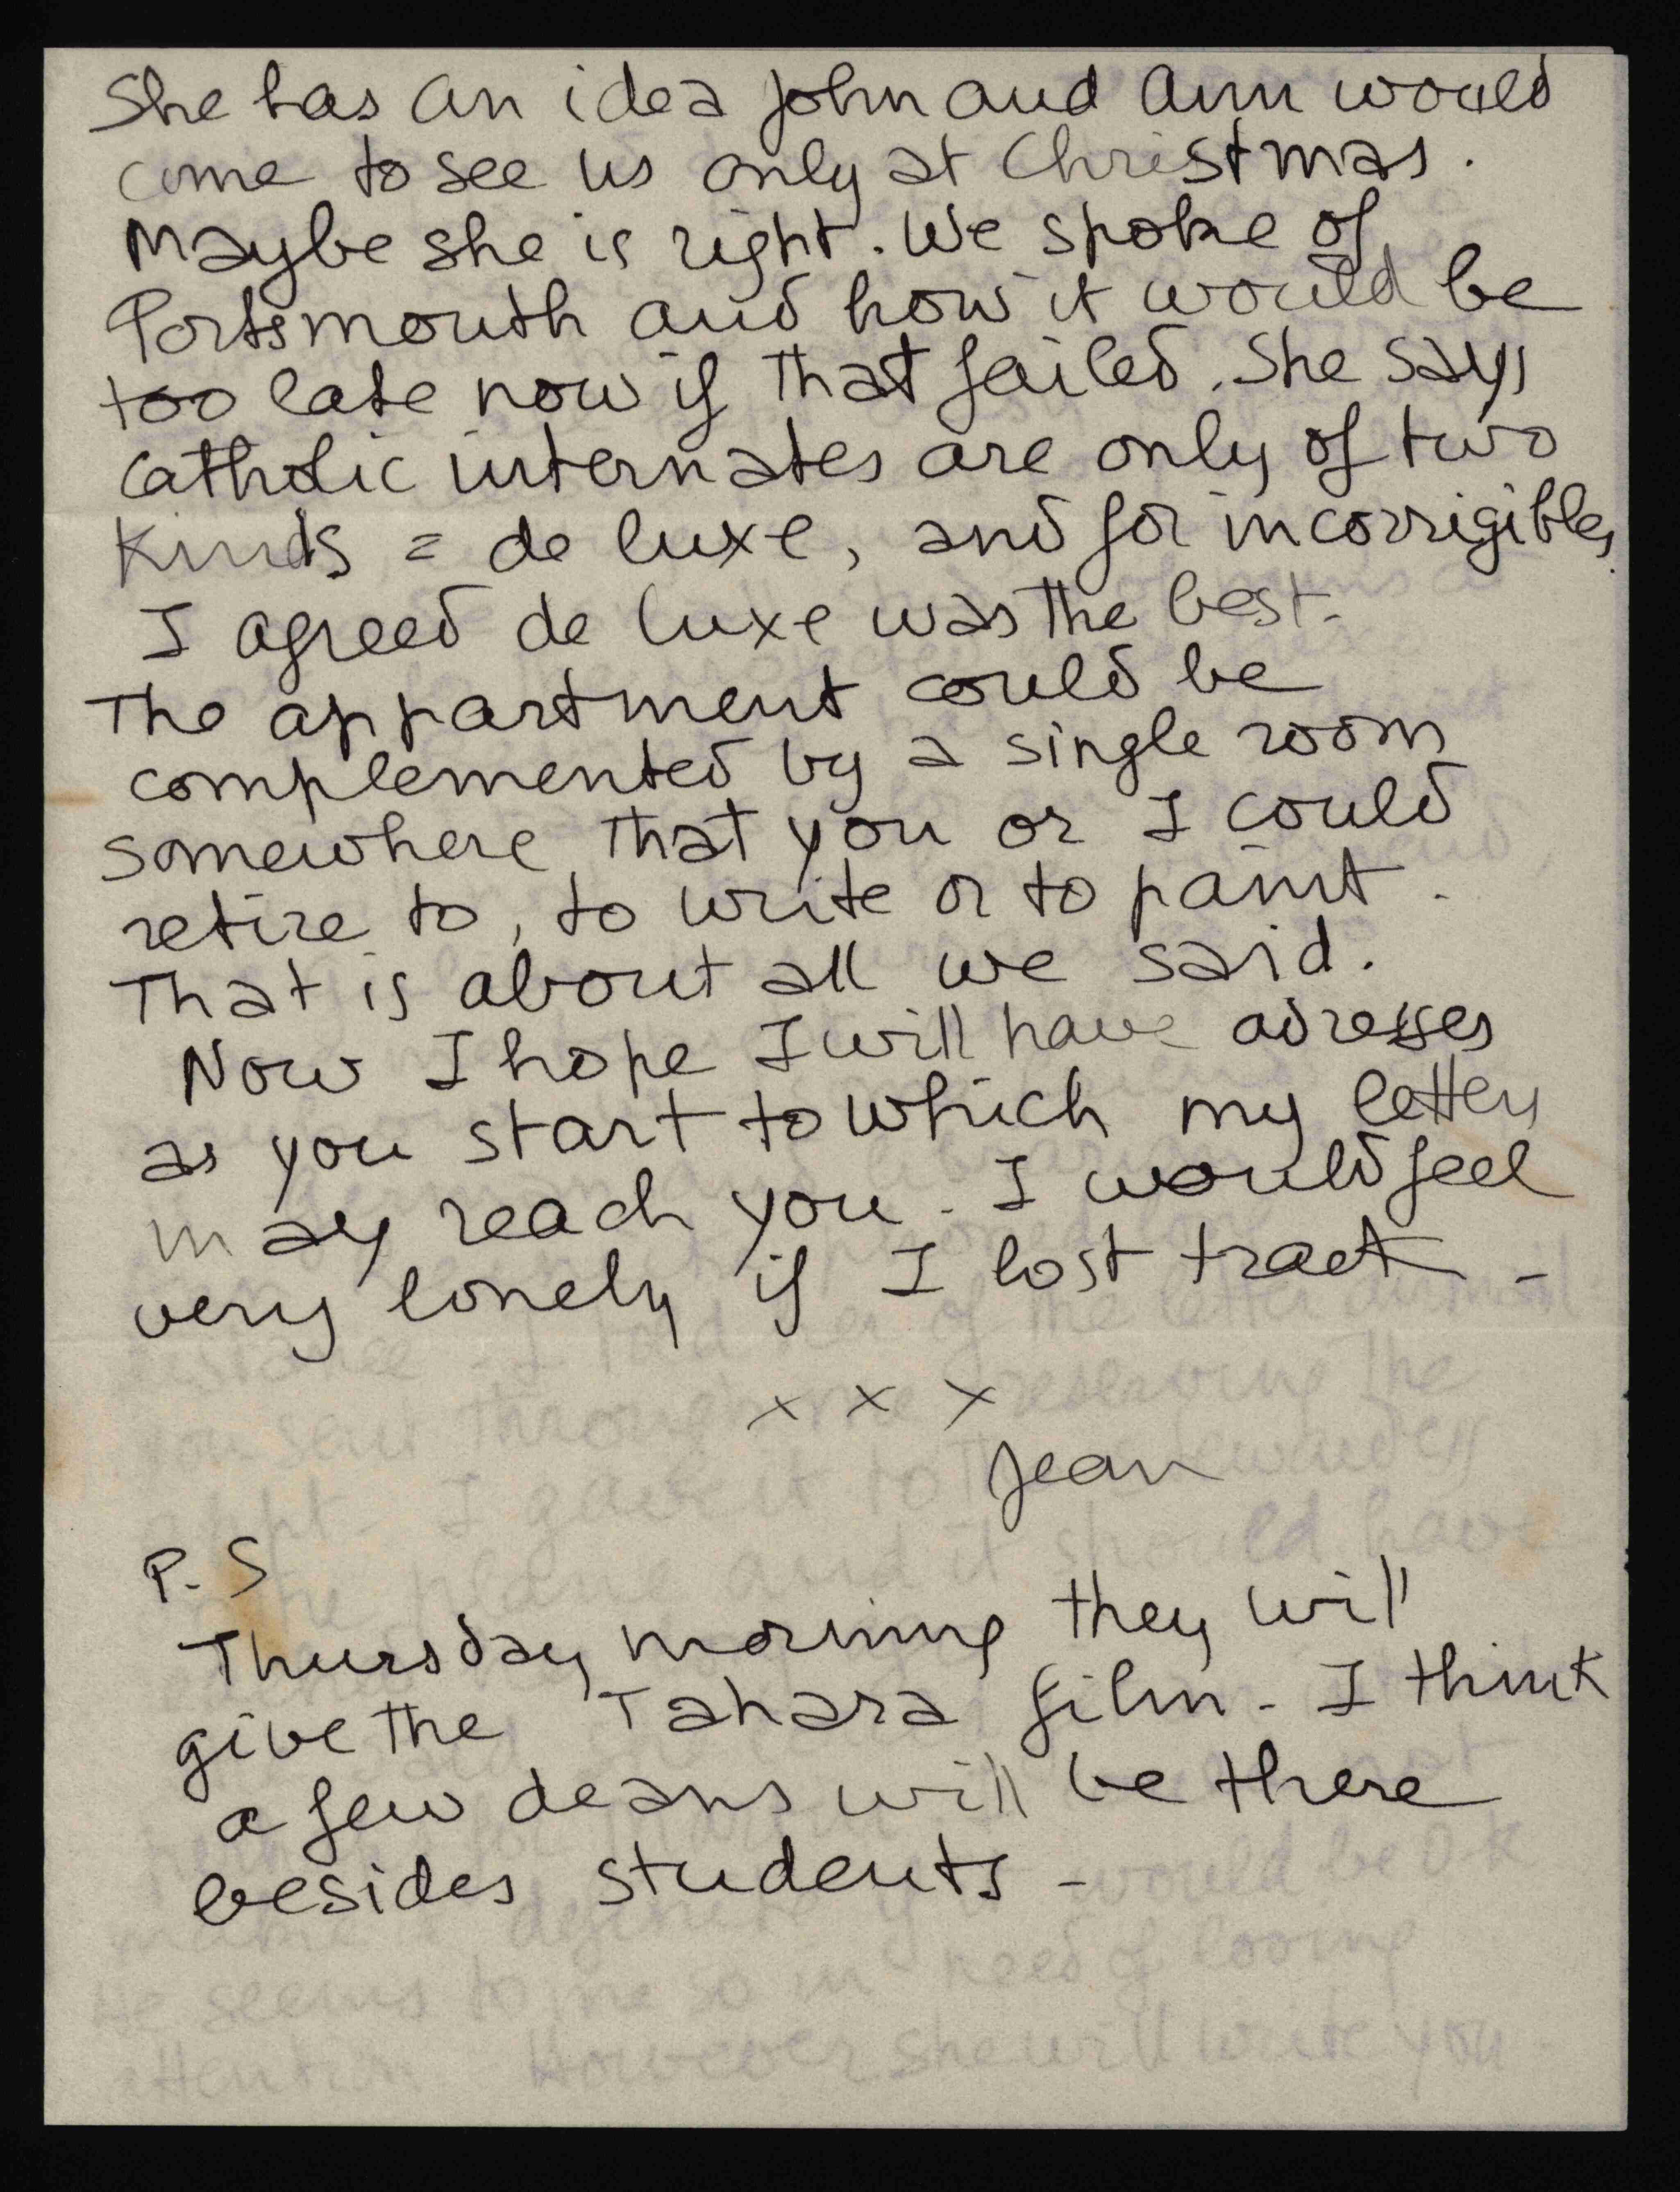 She has an idea John and Ann would
come to see us only at Christmas.
Maybe she is right. We spoke of
Portsmouth and how it would be
too late now if that failed. She says
catholic internates are only of two
kinds = de luxe, and for incorrigibles.
I agreed de luxe was the best.
The appartment could be
complemented by a single room
somewhere that you or I could
retire to, to write or to paint.
That is about all we said.
Now I hope I will have adresses
as you start to which my letters
may reach you. I would feel
very lonely if I lost track -
x x x
Jean
P.S
Thursday morning they will
give the Tahara film - I think
a few deans will be there
besides students -